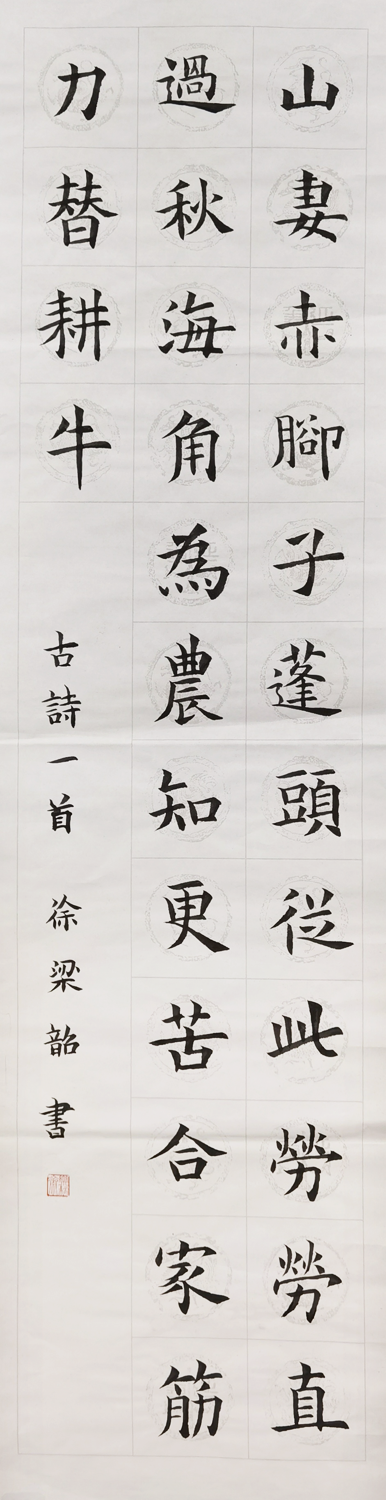 山妻赤腳子蓬頭從此勞勞直
過秋海角為農知更苦合家筋
力替耕牛
古詩一首 徐梁韶 書